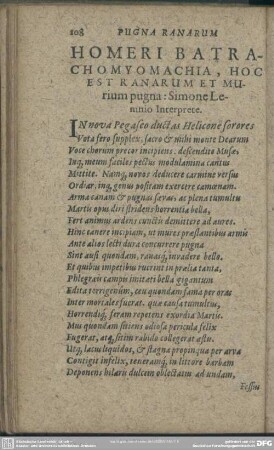 108 PUGNA RANARUM
HOMERI BATRA-
CHOMYOMACHIA, HOC
EST RANARUM ET MU-
rium pugna: Simone Le-
mnio Interprete.
IN nova Pegaseo ductas Helicone sorores
Vota fero supplex, sacro & mihi monte Dearum
Voce chorum precor incipiens. descendite Musæ,
Inq; meum faciles pectus modulamina cantus
Mittite. Namq; novos deducere carmine versus
Ordiar, inq; genu positam exercere camœnam.
Arma canam & pugnas sævas, ac plena tumultu
Martis opus diri stridens horrentia bella,
Fert animus ardens cunctis demittere ad aures.
Hinc canere incipiam, ut mures præstantibus armis
Ante alios lecti dura concurrere pugna
Sint ausi quondam, ranasq; invadere bello.
Et quibus impetibus ruerint in prælia tanta,
Phlegræis campis imitati bella gigantum
Edita terrigenûm, ceu quondam fama per oras
Inter mortales fuerat. quæ causa tumultus,
Horrendiq; feram repetens exordia Martis.
Mus quondam sitiens odiosa pericula felix
Fugerat, atq; sitim rabido collegerat æstu.
Utq; lacus liquidos, & stagna propinqua per arva
Contigit infelix, teneramq; in littore barbam
Deponens hilaris dulcem oblectatur ad undam,
Fessus